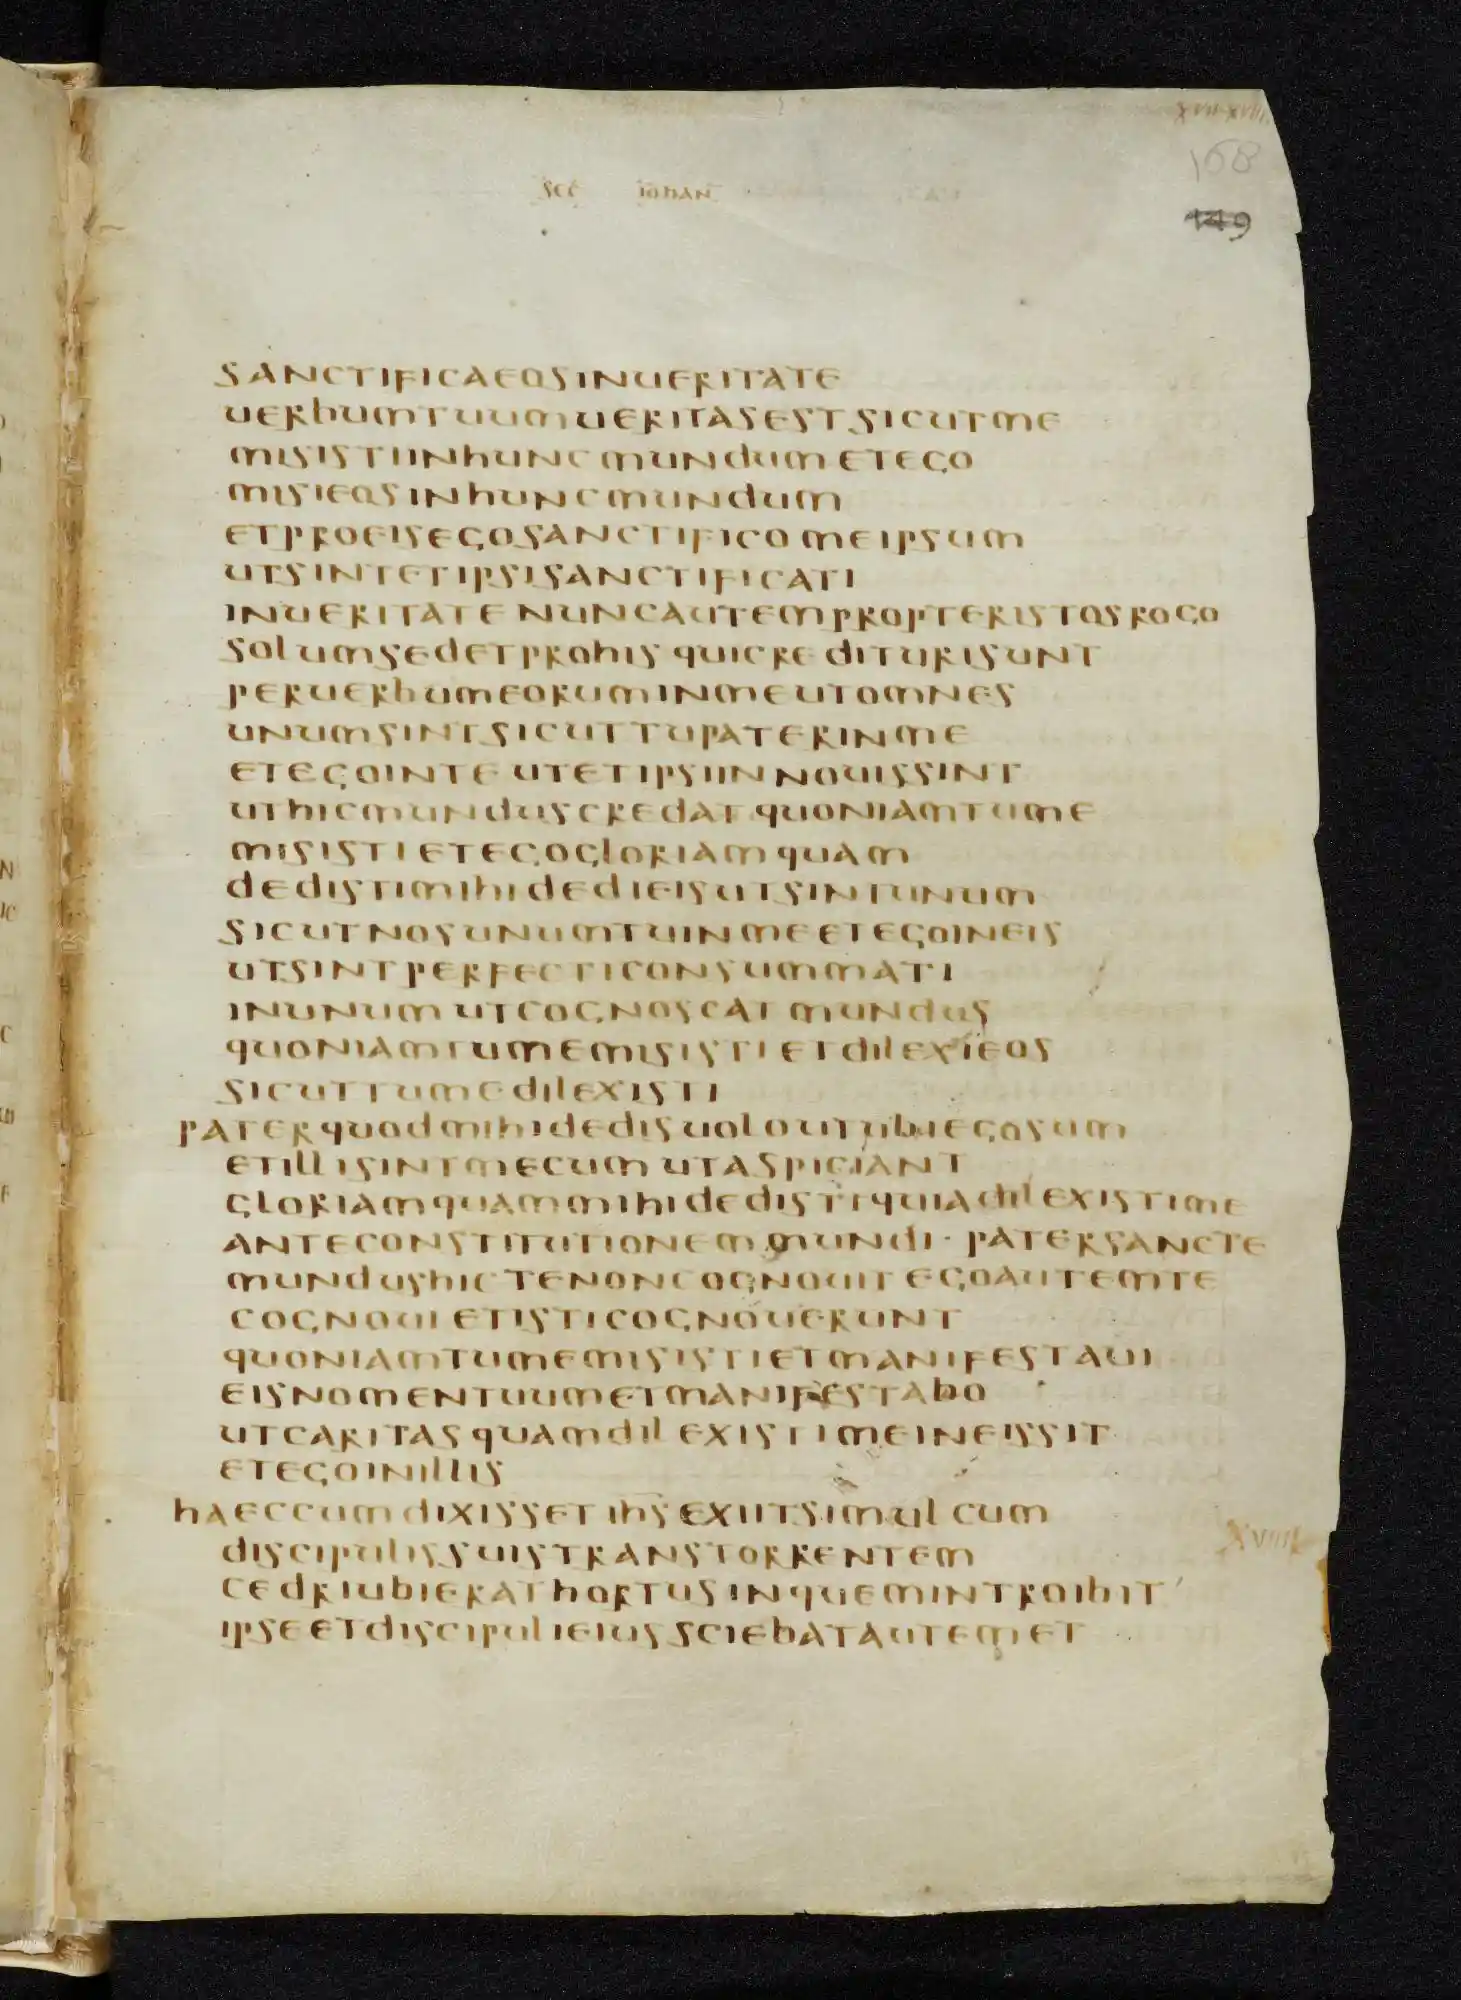 XVII-XVIII
168
149
SCC IOHAN
SANCTIFICAEOSINUERITATE
UERBUMTUUMUERITASEST SICUTME
MISISTIINHUNCMUNDUMETEGO
MISIEOSINHUNCMUNDUM
ETPROEISEGOSANCTIFICO MEIPSUM
UTSINTETIPSISANCTIFICATI
INUERITATE NUNCAUTEMPROPTERISTOSROGO
SOLUMSEDETPROHIS QUICREDITURISUNT
PERUERBUMEORUMINMEUTOMNES
UNUMSINTSICUTTUPATERINME
ETEGOINTE UTETIPSIINNOUISSINT
UTHICMUNDUSCREDAT QUONIAMTUME
MISISTI ETEGOGLORIAMQUAM
DEDISTIMIHIDEDIEISUTSINTUNUM
SICUTNOSUNUMTUINMEETEGOINEIS
UTSINTPERFECTICONSUMMATI
INUNUM UTCOGNOSCAT MUNDUS
QUONIAMTUMEMISISTI ETDILEXIEOS
SICUTTUMEDILEXISTI
PATERQUODMIHIDEDISUOLOUTUBIEGOSUM
ETILLISINTMECUM UTASPICIANT
GLORIAMQUAMMIHIDEDISTIQUIADILEXISTIME
ANTECONSTITUTIONEMMUNDI · PATERSANCTE
MUNDUSHICTENONCOGNOUIT EGOAUTEMTE
COGNOUI ETISTICOGNOUERUNT
QUONIAMTUMEMISISTIETMANIFESTAUI
EISNOMENTUUMETMANIFESTABO
UTCARITASQUAMDILEXISTIMEINEISSIT
ETEGOINILLIS
HAECCUMDIXISSET IHS EXIITSIMUL CUM
DISCIPULISSUISTRANSTORRENTEM
XVIIII
CEDRIUBIERATHORTUSINQUEMINTROIBIT
IPSEETDISCIPULIEIUS SCIEBATAUTEMET